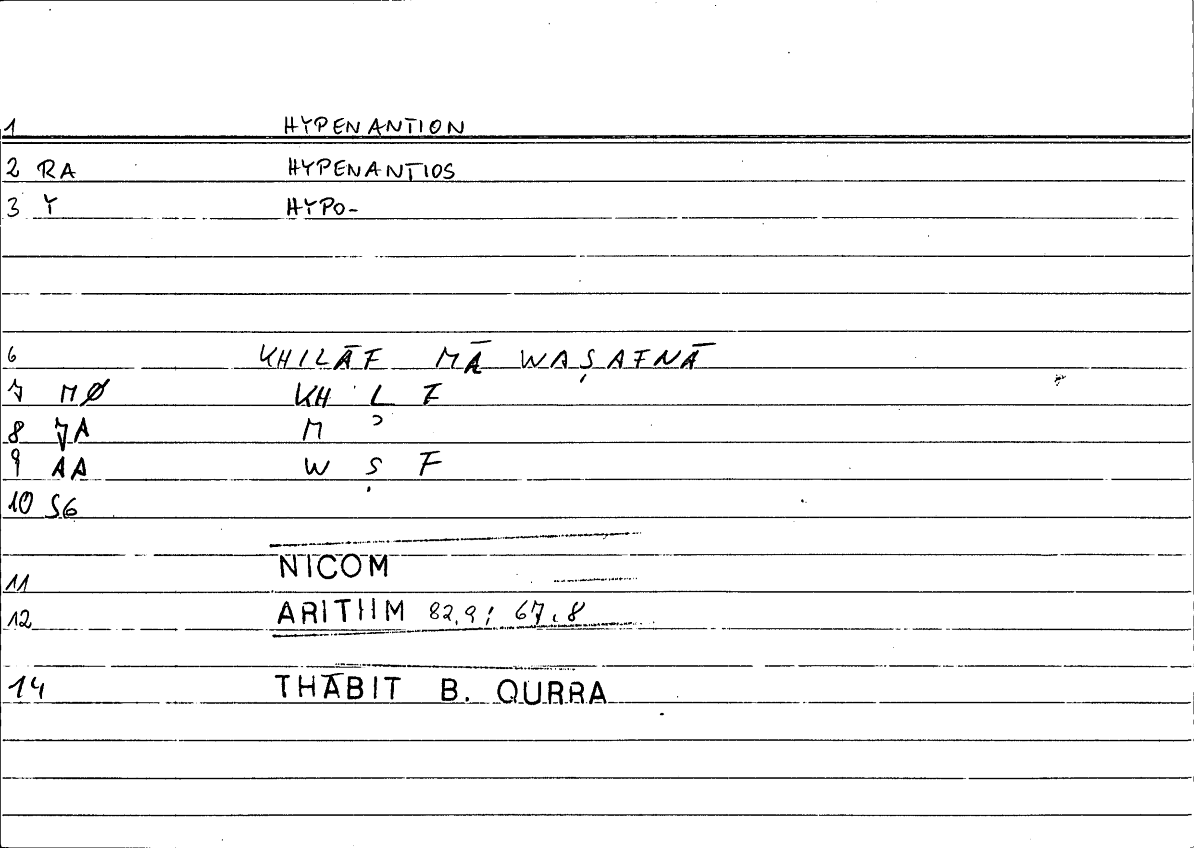 1 HYPENANTION
2 RA HYPENANTIOS
3 Y HYPO-
6 KHILĀF MĀ WAṢAFNĀ
7 MØ KH L F
8 JA M ʾ
9 AA W Ṣ F
10 SG
11 NICOM
12 ARITHM 82,9; 67,8
14 THĀBIT B. QURRA